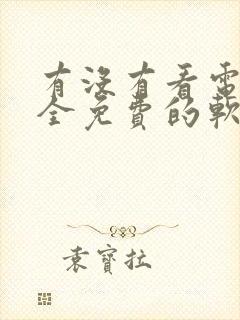 有没有看電
全免費的軟
袁寶拉